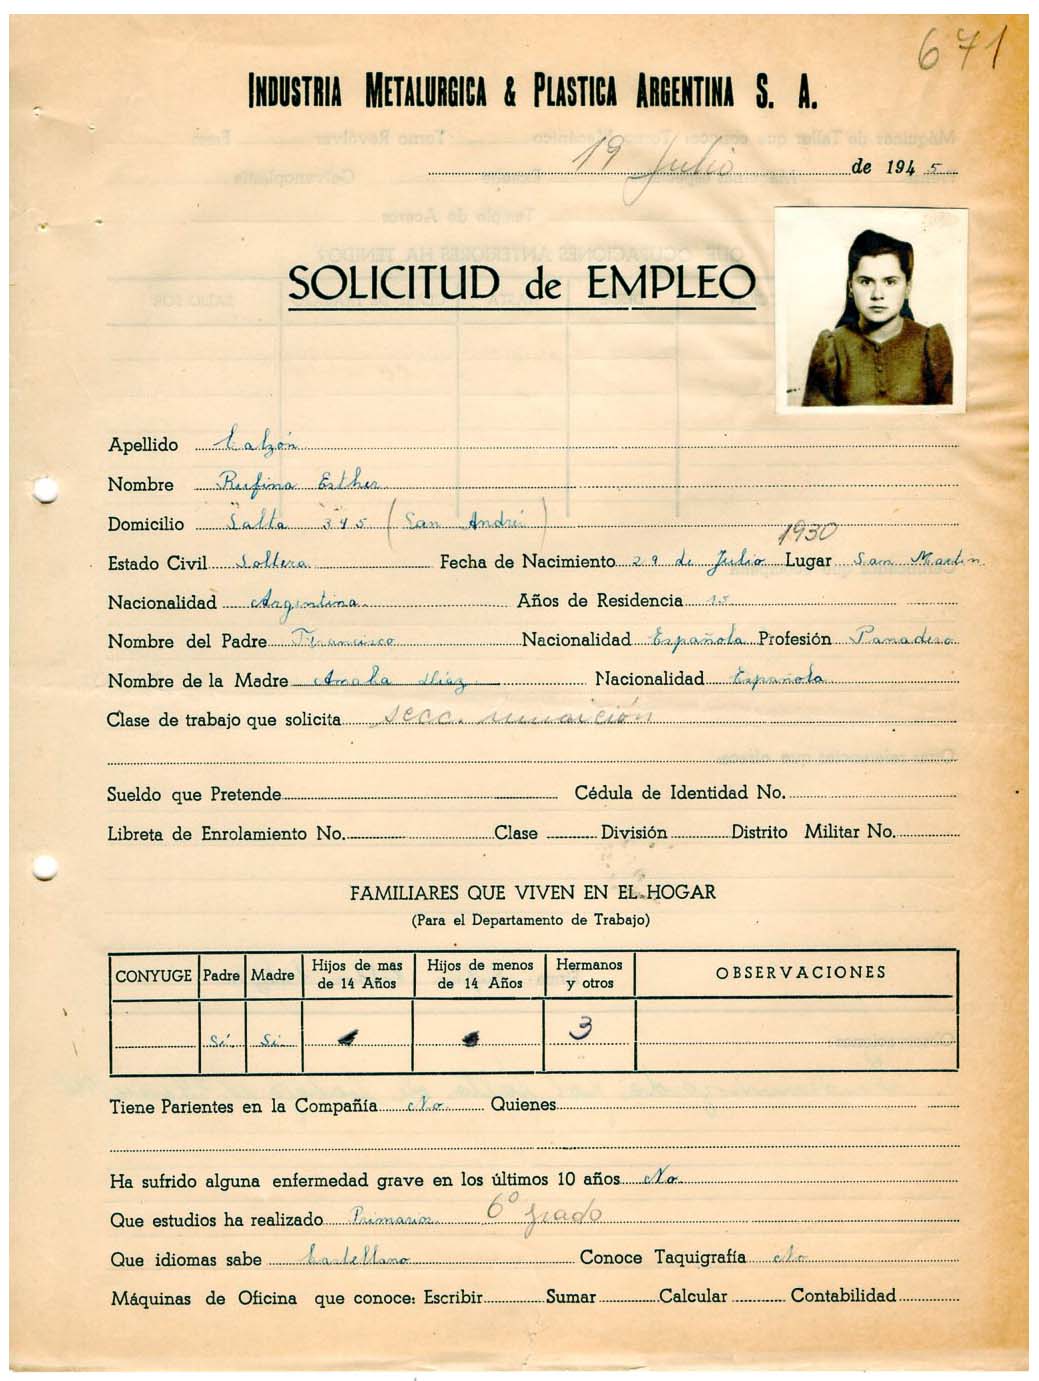 671
INDUSTRIA METALURGICA & PLASTICA ARGENTINA S. A.
19 Julio de 1945
SOLICITUD de EMPLEO
Apellido Calzón
Nombre Rufina Esther
Domicilio Salta 345 (San Andrés)
1930
Estado Civil Soltera Fecha de Nacimiento 29 de Julio Lugar San Martin
Nacionalidad Argentina Años de Residencia 15
Nombre del Padre Francisco Nacionalidad Española Profesión Panadero
Nombre de la Madre Amalia Díaz Nacionalidad Española
Clase de trabajo que solicita secc. munición
Sueldo que Pretende Cédula de Identidad No.
Libreta de Enrolamiento No. Clase División Distrito Militar No.
FAMILIARES QUE VIVEN EN EL HOGAR
(Para el Departamento de Trabajo)
CONYUGE Padre Madre Hijos de mas de 14 Años Hijos de menos de 14 Años Hermanos y otros OBSERVACIONES
Si. Si. 3
Tiene Parientes en la Compañía No Quienes
Ha sufrido alguna enfermedad grave en los últimos 10 años No
Que estudios ha realizado Primarios 6º grado
Que idiomas sabe Castellano Conoce Taquigrafía No
Máquinas de Oficina que conoce: Escribir Sumar Calcular Contabilidad